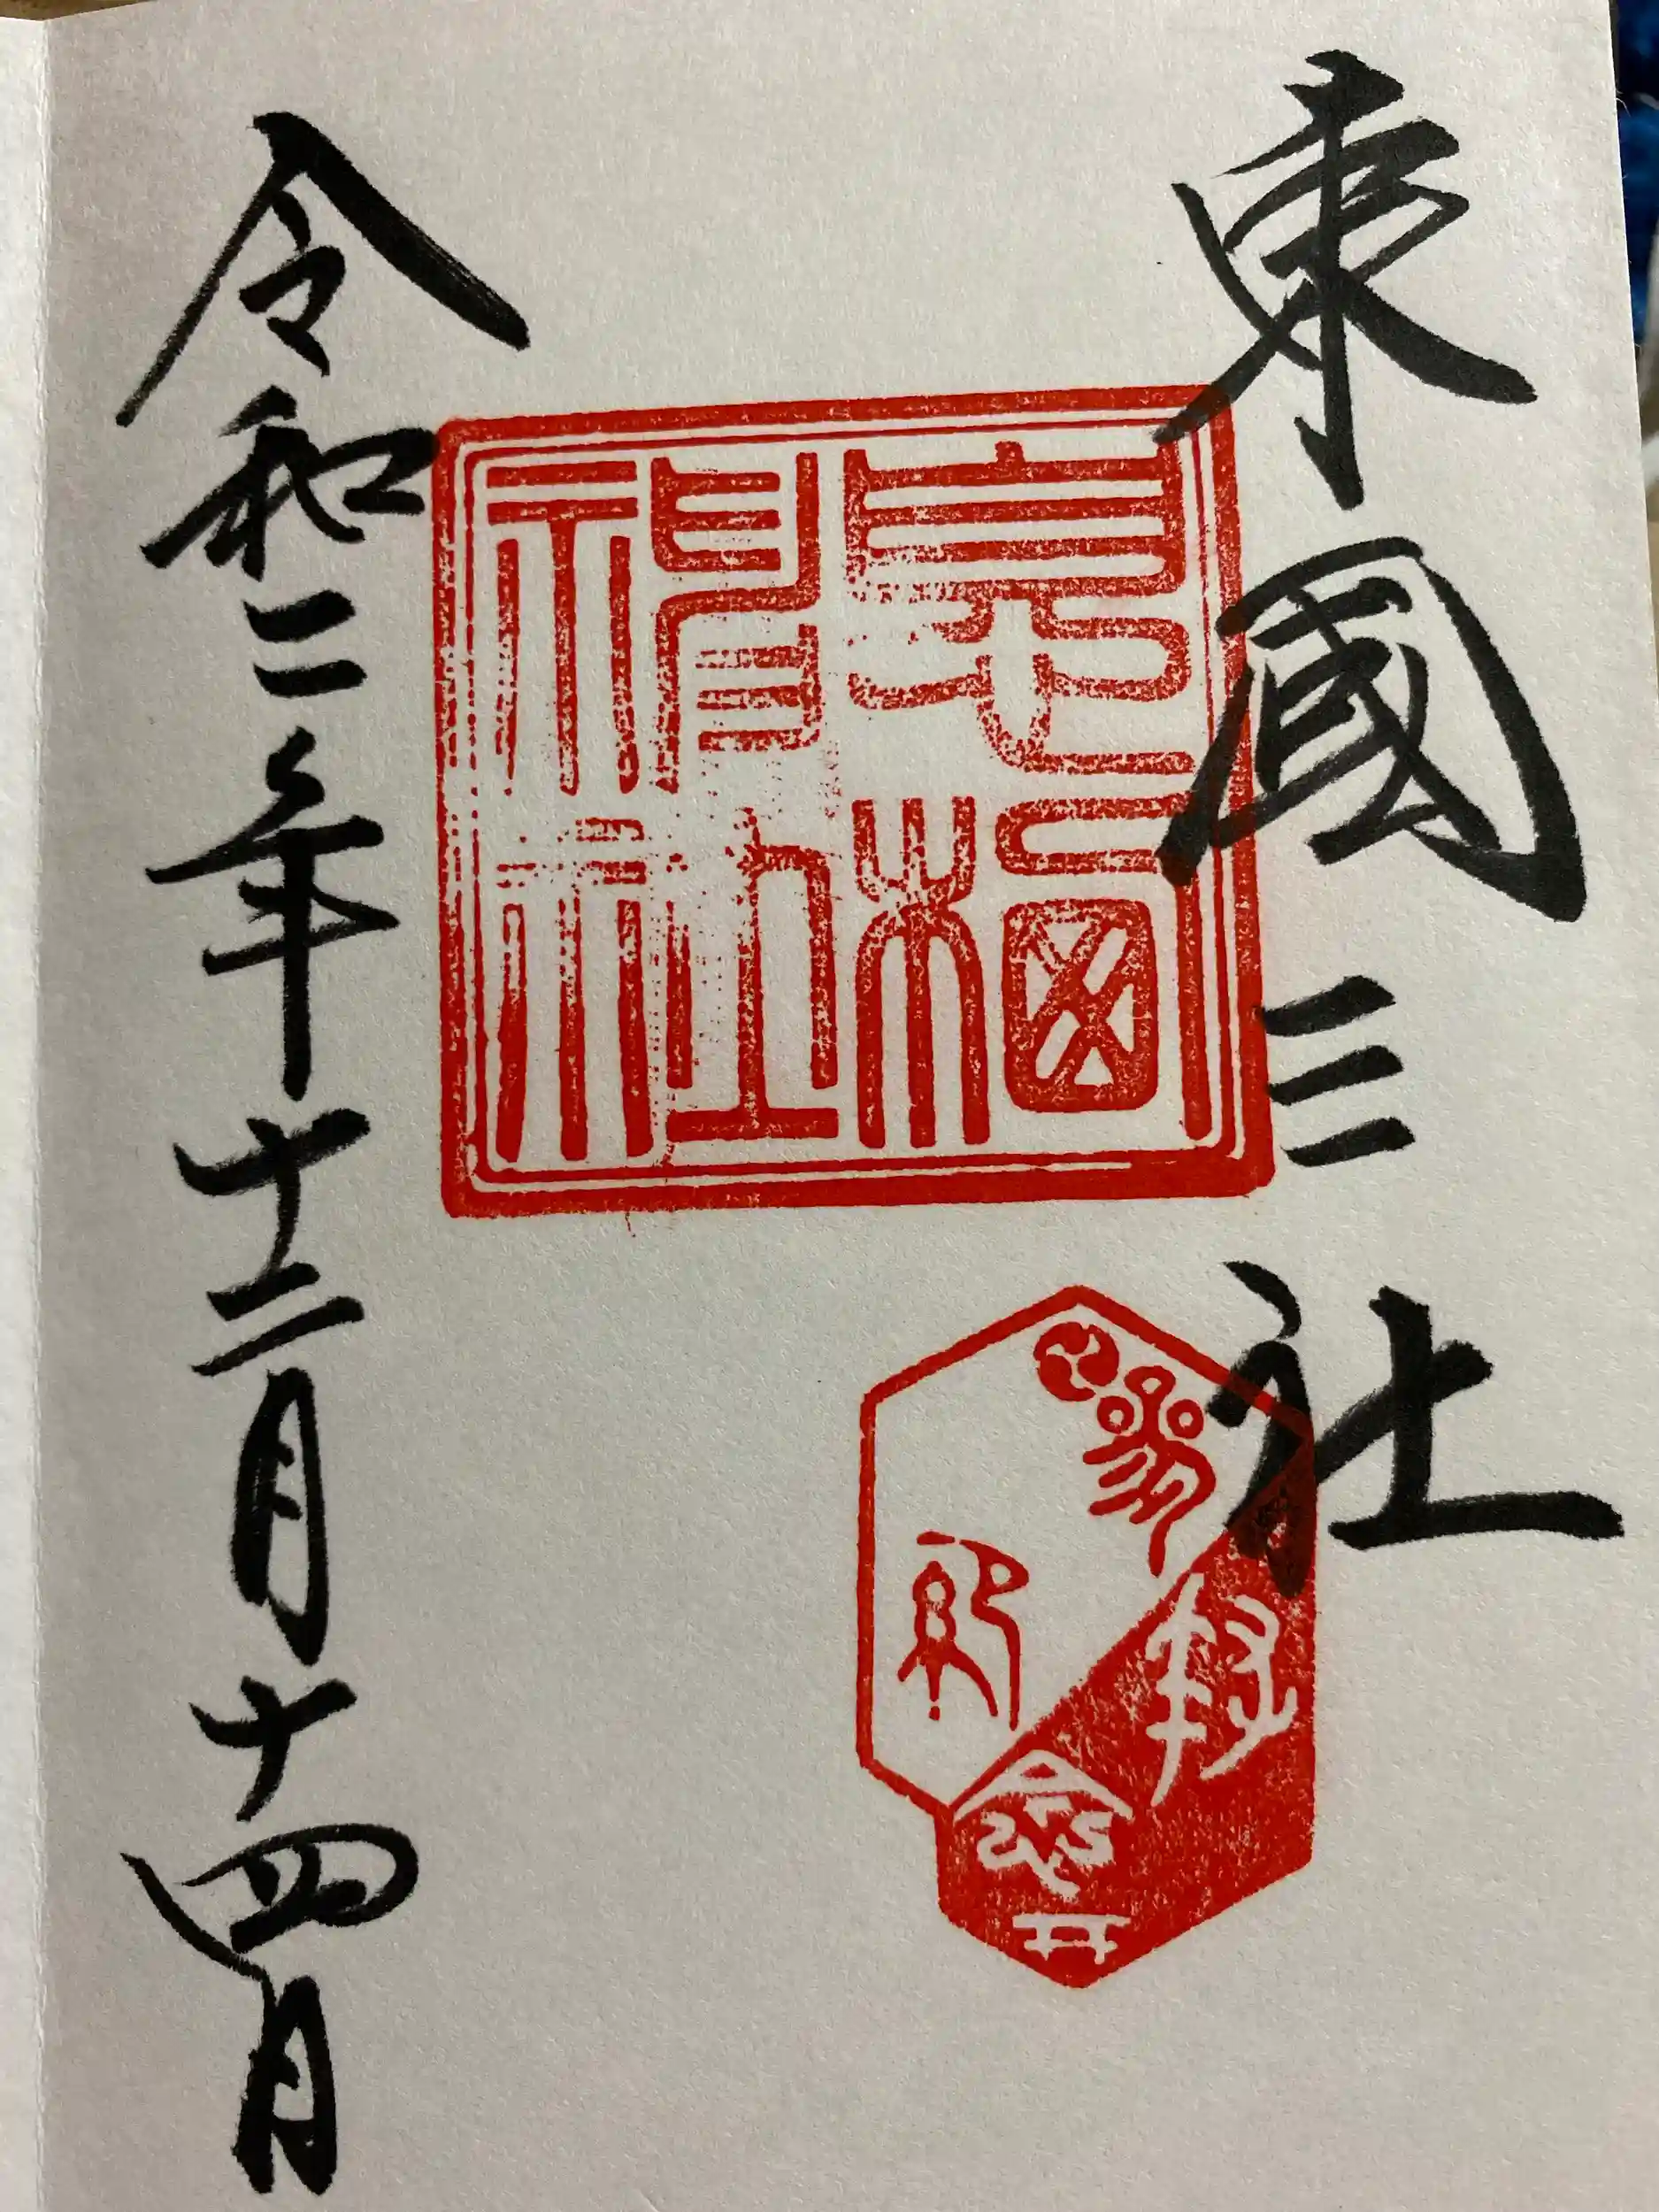 東國三社
息栖
神社
令和二年十二月十四日